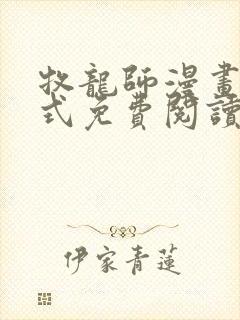 牧龍師漫畫
式免費閱讀
伊家青蓮